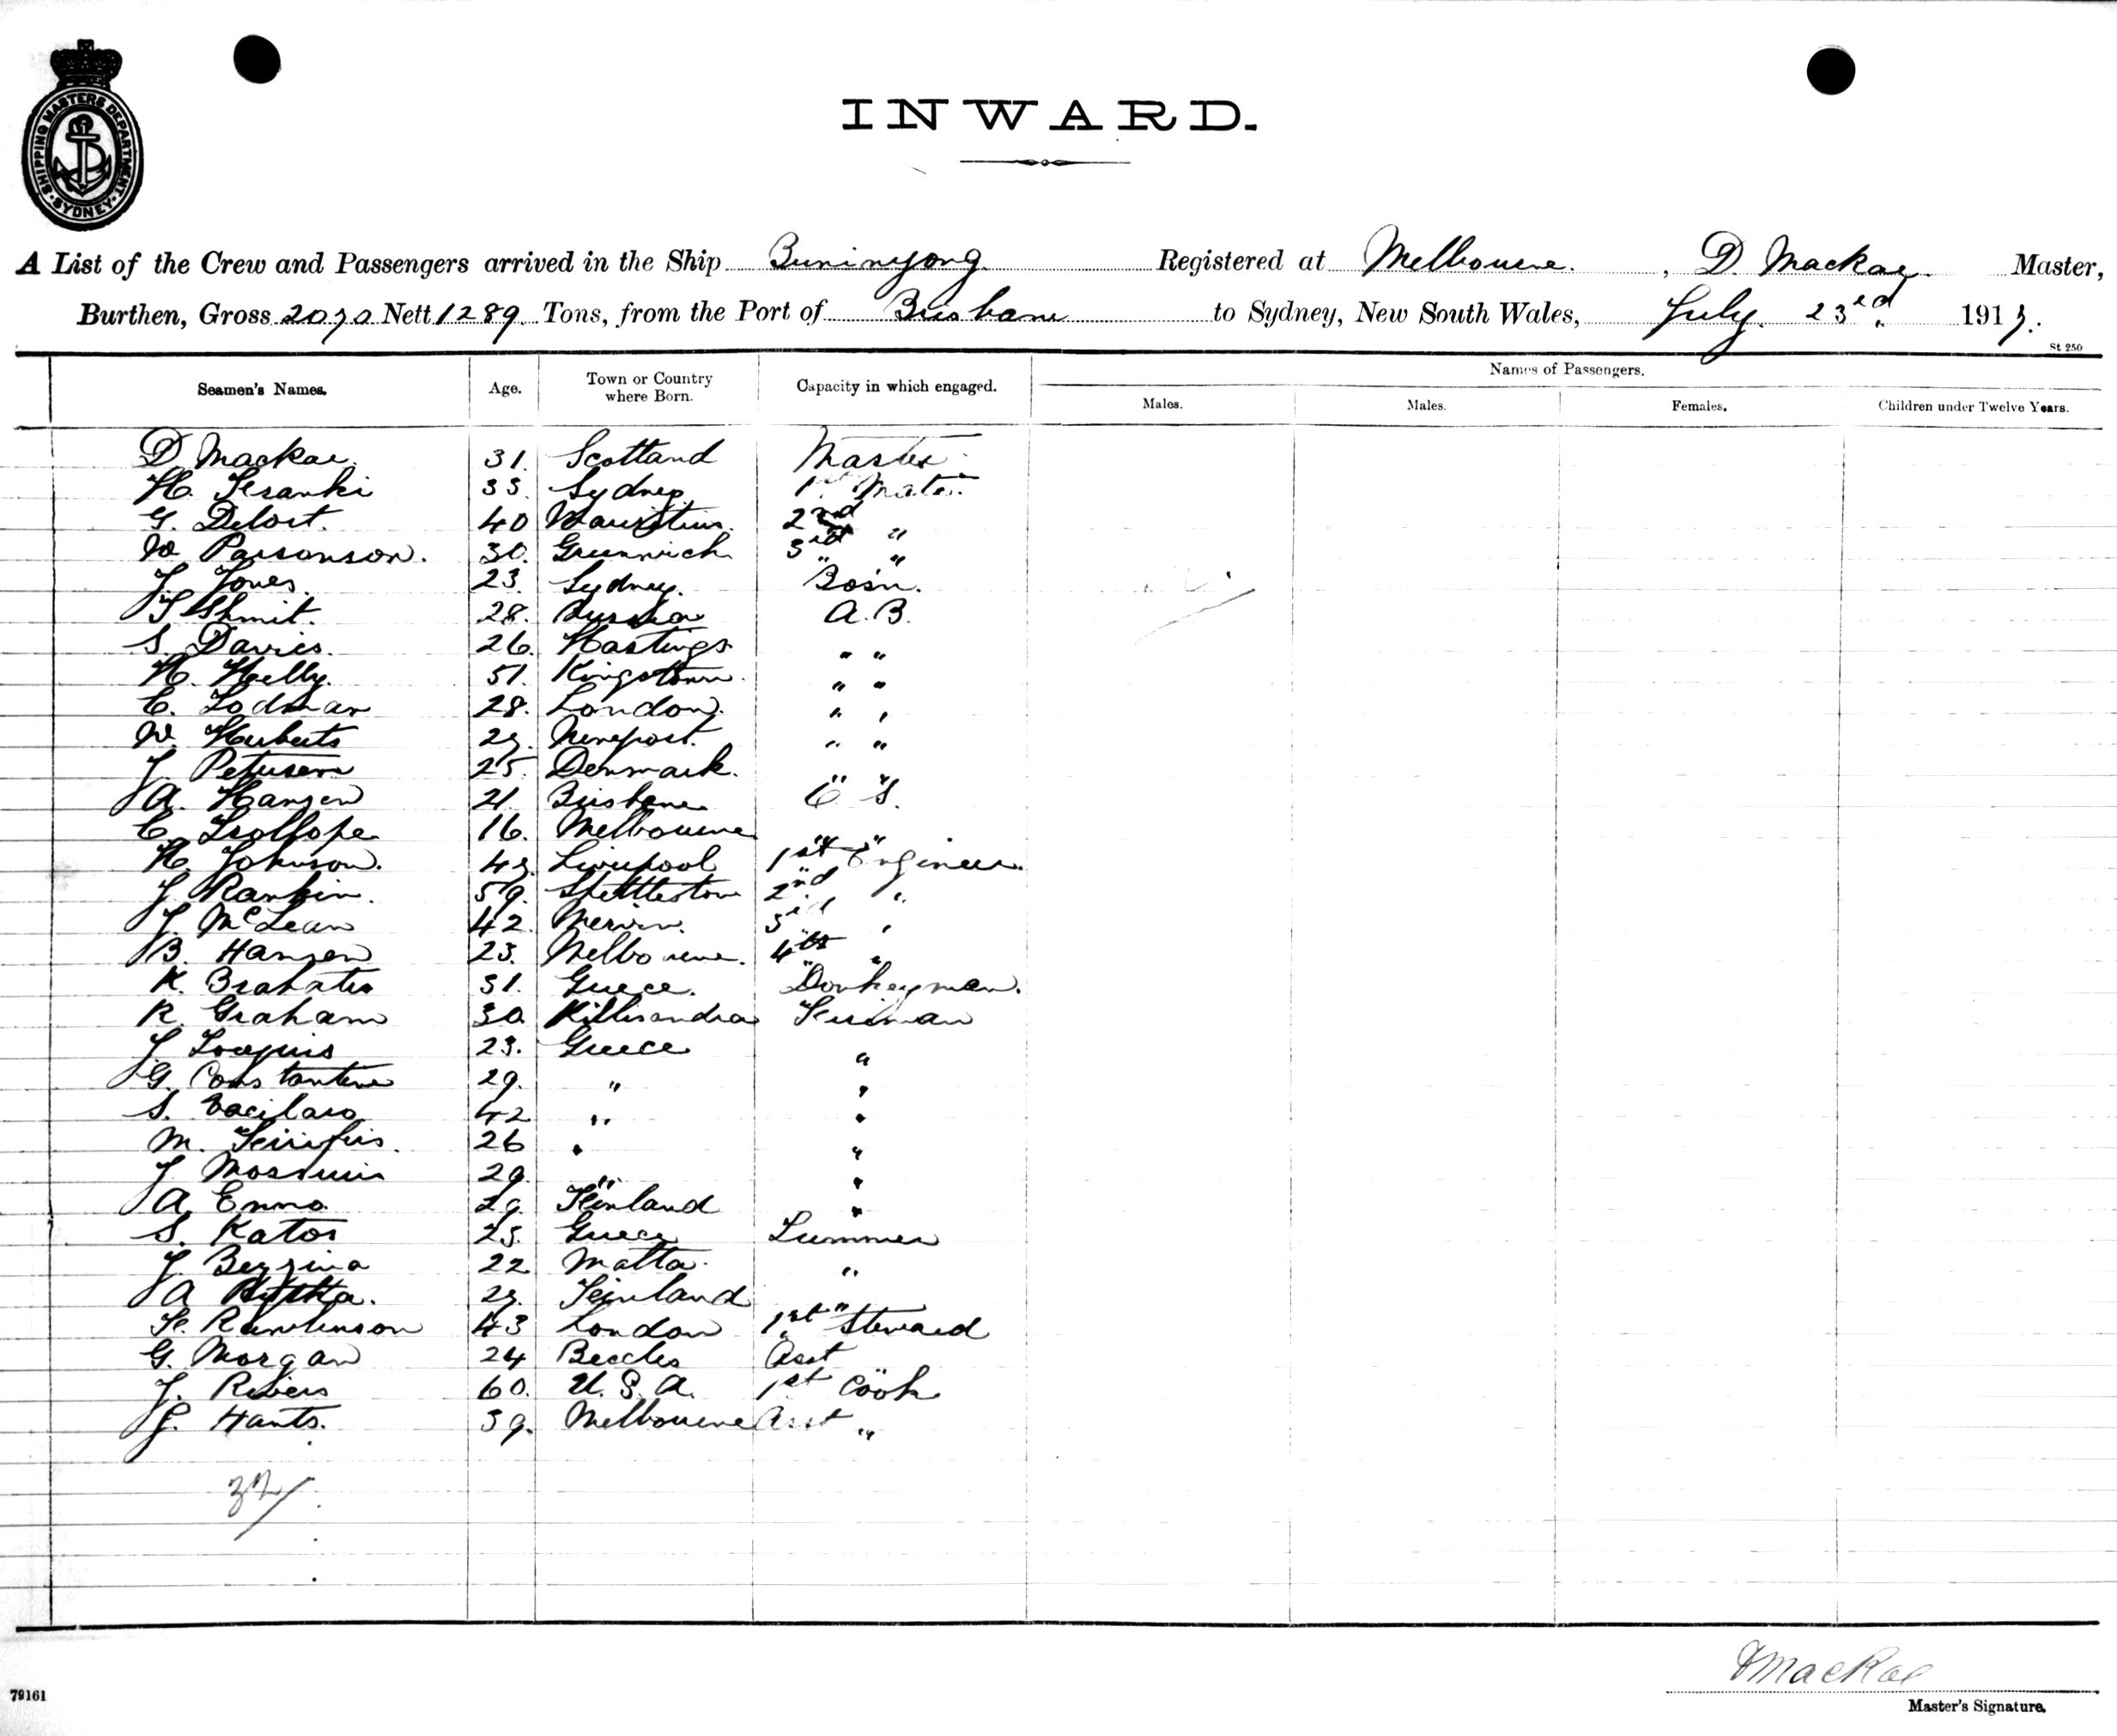 SHIPPING MASTERS DEPARTMENT
SYDNEY
INWARD.
A List of the Crew and Passengers arrived in the Ship Buninyong Registered at Melbourne. , D. Mackae. Master,
Burthen, Gross 2070 Nett 1289 Tons, from the Port of Brisbane to Sydney, New South Wales, July. 23rd 1913.
St 250
Seamen's Names. Age. Town or Country where Born. Capacity in which engaged. Names of Passengers.
Males. Males. Females. Children under Twelve Years.
D Mackae. 31. Scotland Master
H. 33. Sydney 1st Mate.
G. Delort. 40 Mauritius. 2nd "
W Parsonson. 30. Greenwich 3rd "
J. Jones. 23. Sydney. Bosn.
J Shmit. 28. Russia A.B.
S. Davies. 26. Hastings " "
H. Kelly. 51. Kingstown. " "
C. Lodman 28. London. " "
W. Huberts 23. Newport. " "
J. Petersen 25. Denmark. " "
A. Hansen 21. Brisbane O S.
C. Trollope 16. Melbourne " "
H. Johnson. 43. Liverpool 1st Engineer.
J Rankin. 59. Shettleston 2nd "
J. McLean 42. 3rd "
B. Hansen 23. Melbourne. 4th "
K. 31. Greece. Donkeyman.
R. Graham 30 Killisandra Fireman
J. 23. Greece "
G. Constantine 29. " "
S. Vacilaro 42 " "
M. 26 " "
J. 29. " "
A. Enno. 29. Finland "
S. Katos 25. Greece Trimmer
J. Bezzina 22 Malta. "
A 23. Finland "
F. Rawlinson 43 London 1st Steward
G. Morgan 24 Beccles Asst "
J. Rivers 60. U.S.A. 1st Cook
G. Hants. 39. Melbourne Asst "
32/
D Mackae
Master's Signature.
79161